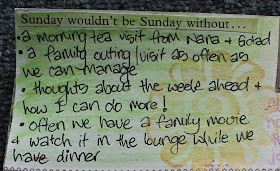 Sunday wouldn't be Sunday without...
• a morning tea visit from Nana & Gdad
• a family outing/visit as often as
we can manage
• thoughts about the week ahead &
how I can do more!
• often we have a family movie
& watch it in the lounge while we
have dinner